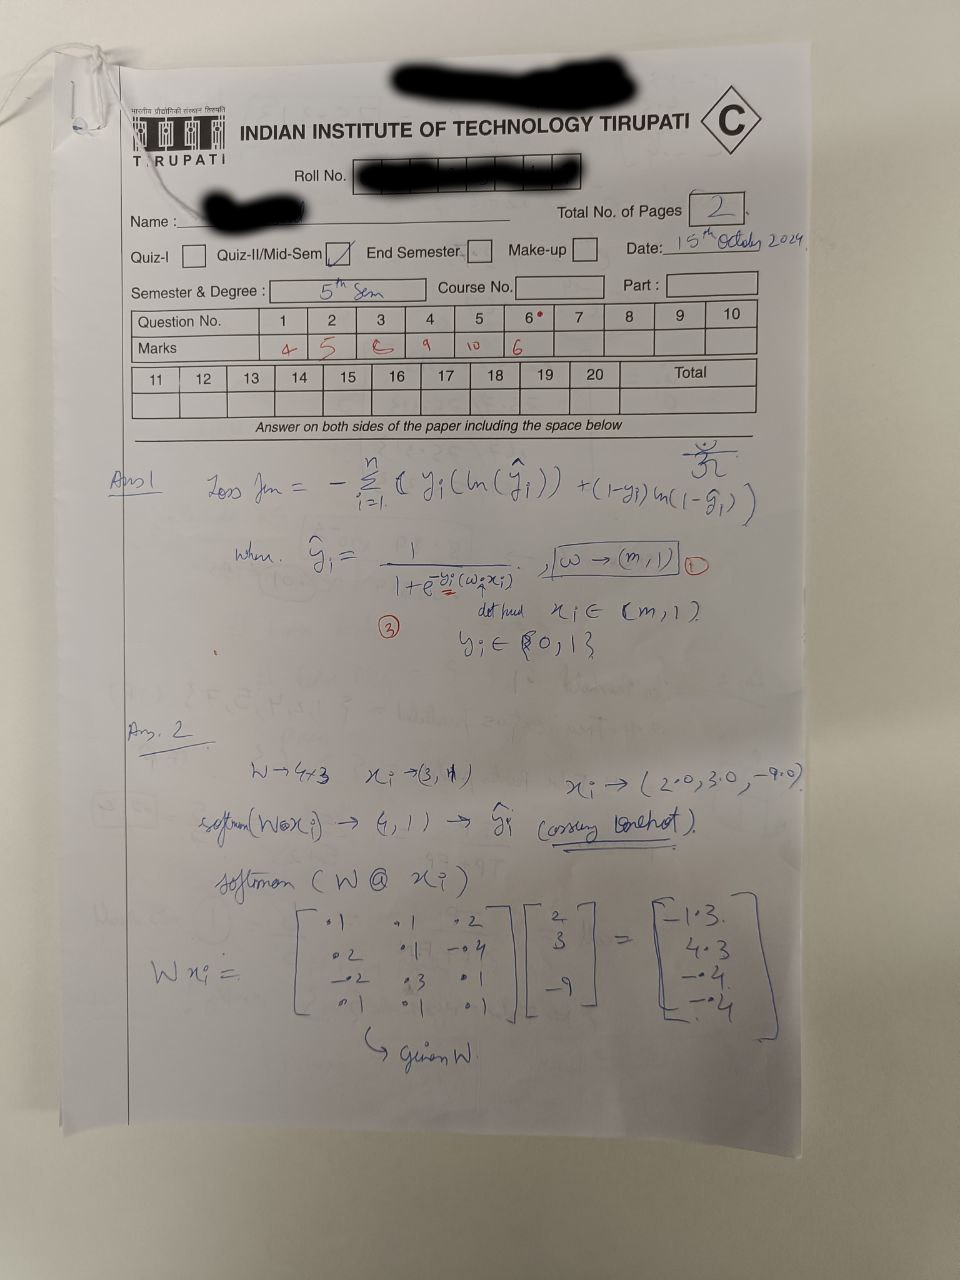 भारतीय प्रौद्योगिकी संस्थान तिरुपति
TIRUPATI
INDIAN INSTITUTE OF TECHNOLOGY TIRUPATI
C
Roll No.
Name :
Total No. of Pages 2
Quiz-I Quiz-II/Mid-Sem ✓ End Semester Make-up Date: 15th October 2024
Semester & Degree : 5th Sem Course No. Part :
Question No. 1 2 3 4 5 6 7 8 9 10
Marks 4 5 9 10 6
11 12 13 14 15 16 17 18 19 20 Total
Answer on both sides of the paper including the space below
Ans 1 Loss fn = - Σ_{i=1}^{n} ( y_i (ln(ŷ_i)) + (1-y_i) ln(1-ŷ_i) )
when. ŷ_i = 1 / (1+e^{-y_i(w·x_i)}) , w → (m,1) 1
dot prod x_i ∈ (m,1)
3
y_i ∈ {0,1}
Ans. 2
W → 4×3 x_i → (3,1) x_i → (2.0, 3.0, -9.0)
softmax(W@x_i) → (4,1) → ŷ_i (assuming onehot).
softmax (W @ x_i)
W x_i = [.1 .1 .2; .2 .1 -.4; -.2 .3 .1; .1 .1 .1] [2; 3; -9] = [-1.3; 4.3; -.4; -.4]
↳ given W.